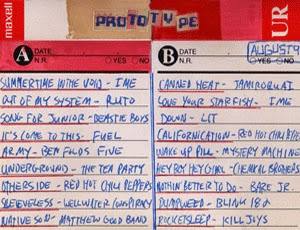 maxell
PROTOTYPE
UR
A DATE
N.R. YES NO
B DATE AUGUST 9
N.R. YES NO
SUMMERTIME IN THE VOID - IME
OUT OF MY SYSTEM - PLUTO
SONG FOR JUNIOR - BEASTIE BOYS
IT'S COME TO THIS - FUEL
ARMY - BEN FOLDS FIVE
UNDERGROUND - THE TEA PARTY
OTHERSIDE - RED HOT CHILI PEPPERS
SLEEVELESS - WELLWATER CONSPIRACY
NATIVE SON - MATTHEW GOOD BAND
CANNED HEAT - JAMIROQUAI
LOVE YOUR STARFISH - IME
DOWN - LIT
CALIFORNICATION - RED HOT CHILI
WAKE UP PILL - MYSTERY MACHINE
HEY BOY HEY GIRL - CHEMICAL BROTHERS
NOTHIN BETTER TO DO - BARE JR.
DUMPWEED - BLINK 182
ROCKETSLEEP - KILLJOYS